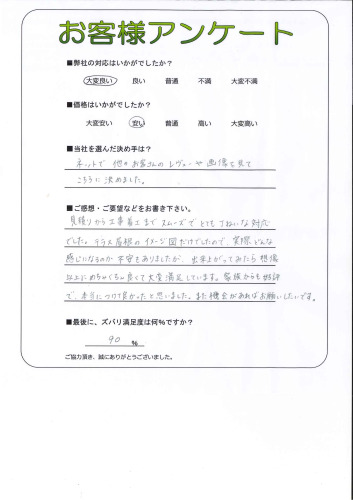 お客様アンケート
■弊社の対応はいかがでしたか？
大変良い 良い 普通 不満 大変不満
■価格はいかがでしたか？
大変安い 安い 普通 高い 大変高い
■当社を選んだ決め手は？
ネットで 他のお客さんのレヴューや画像を見て
こちらに決めました。
■ご感想・ご要望などをお書き下さい。
見積りから工事着工まで スムーズで とても ていねいな対応
でした。テラス屋根のイメージ図だけでしたので、実際どんな
感じになるのか 不安もありましたが、出来上がってみたら 想像
以上にめちゃくちゃ良くて大変満足しています。家族からも好評
で、本当につけて良かったと思いました。また機会があればお願いしたいです。
■最後に、ズバリ満足度は何%ですか？
90 %
ご協力頂き、誠にありがとうございました。